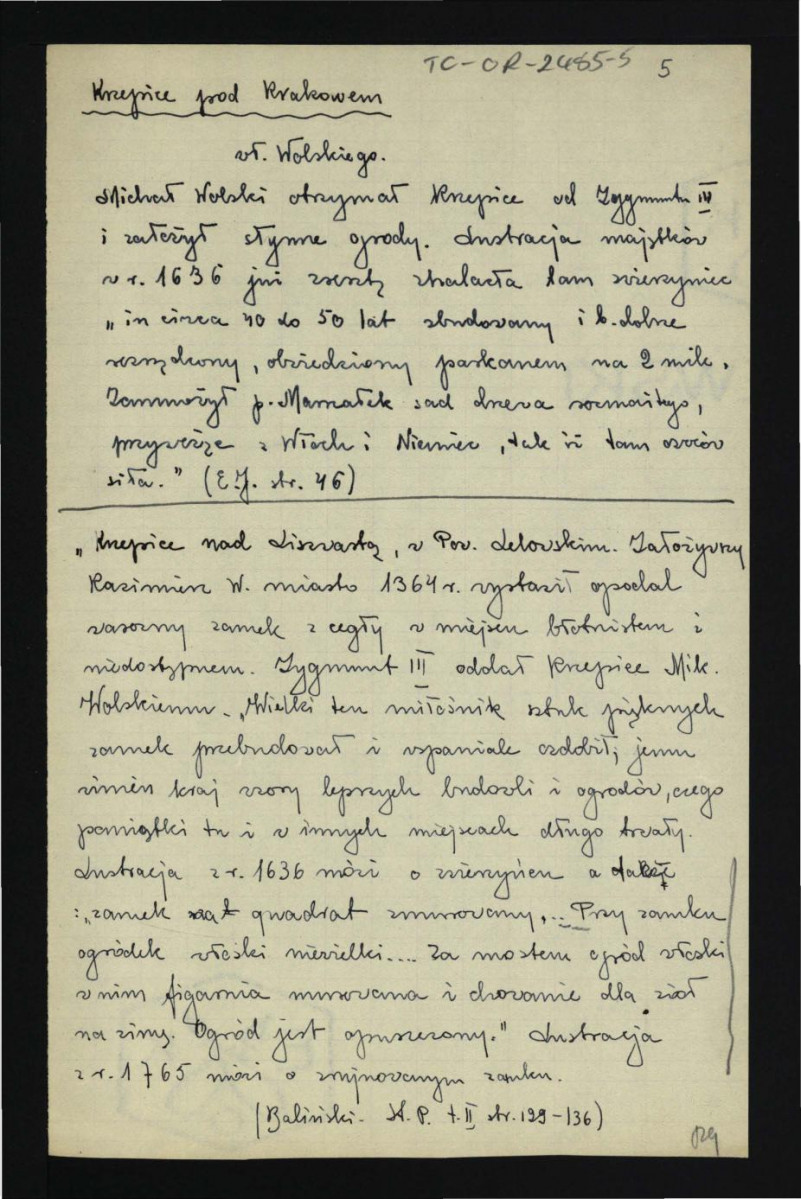 TC-OR-2485-5 5
Krzepice pod Krakowem
wł. Wolskiego.
Michał Wolski otrzymał Krzepice od Zygmunta IV
i założył słynne ogrody. Lustracja majątków
w r. 1636 już zresztą znalazła tam zwierzyniec
„in circa 40 do 50 lat zbudowany i b. dobrze
rozrządzony, obwiedziony parkanem na 2 mile.
Zamnożył p. Marszałek sad drzewa rozmaitego,
przywożąc z Włoch i Niemiec, tak iż tam owoców
siła." (E.J. str. 46)
„Krzepice nad Liswartą, w Pow. Lelowskim. Założywszy
Kazimierz W. miasto 1364 r. wystawił opodal
warowny zamek z cegły w miejscu błotnistem i
niedostępnem. Zygmunt III oddał Krzepice Mik.
Wolskiemu - „Wielki ten miłośnik sztuk pięknych
zamek przebudował i wspaniale ozdobił; jemu
winien kraj wzory lepszych budowli i ogrodów, czego
pamiątki tu i w innych miejscach długo trwały.
Lustracja z r. 1636 mówi o zwierzyńcu a także
: „zamek na quadrat zmurowany,... Przy zamku
ogródek włoski niewielki.... Za mostem ogród włoski
w nim figarnia murowana i chowanie dla ziół
na zimę. Ogród jest opuszczony." Lustracja
z r. 1765 mówi o zrujnowanym zamku.
(Baliński - St. P. t. II str. 129-136)